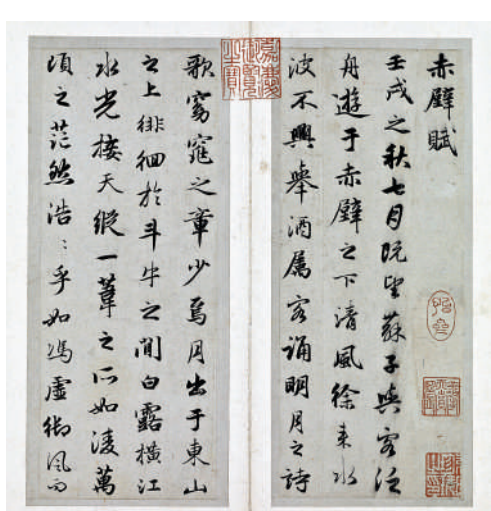 赤壁賦
壬戌之秋七月既望蘇子與客泛
舟遊于赤壁之下清風徐来水
波不興舉酒屬客誦明月之詩
歌窈窕之章少焉月出于東山
之上徘徊於斗牛之間白露横江
水光接天縱一葦之所如淩萬
頃之茫然浩〻乎如馮虚御風而